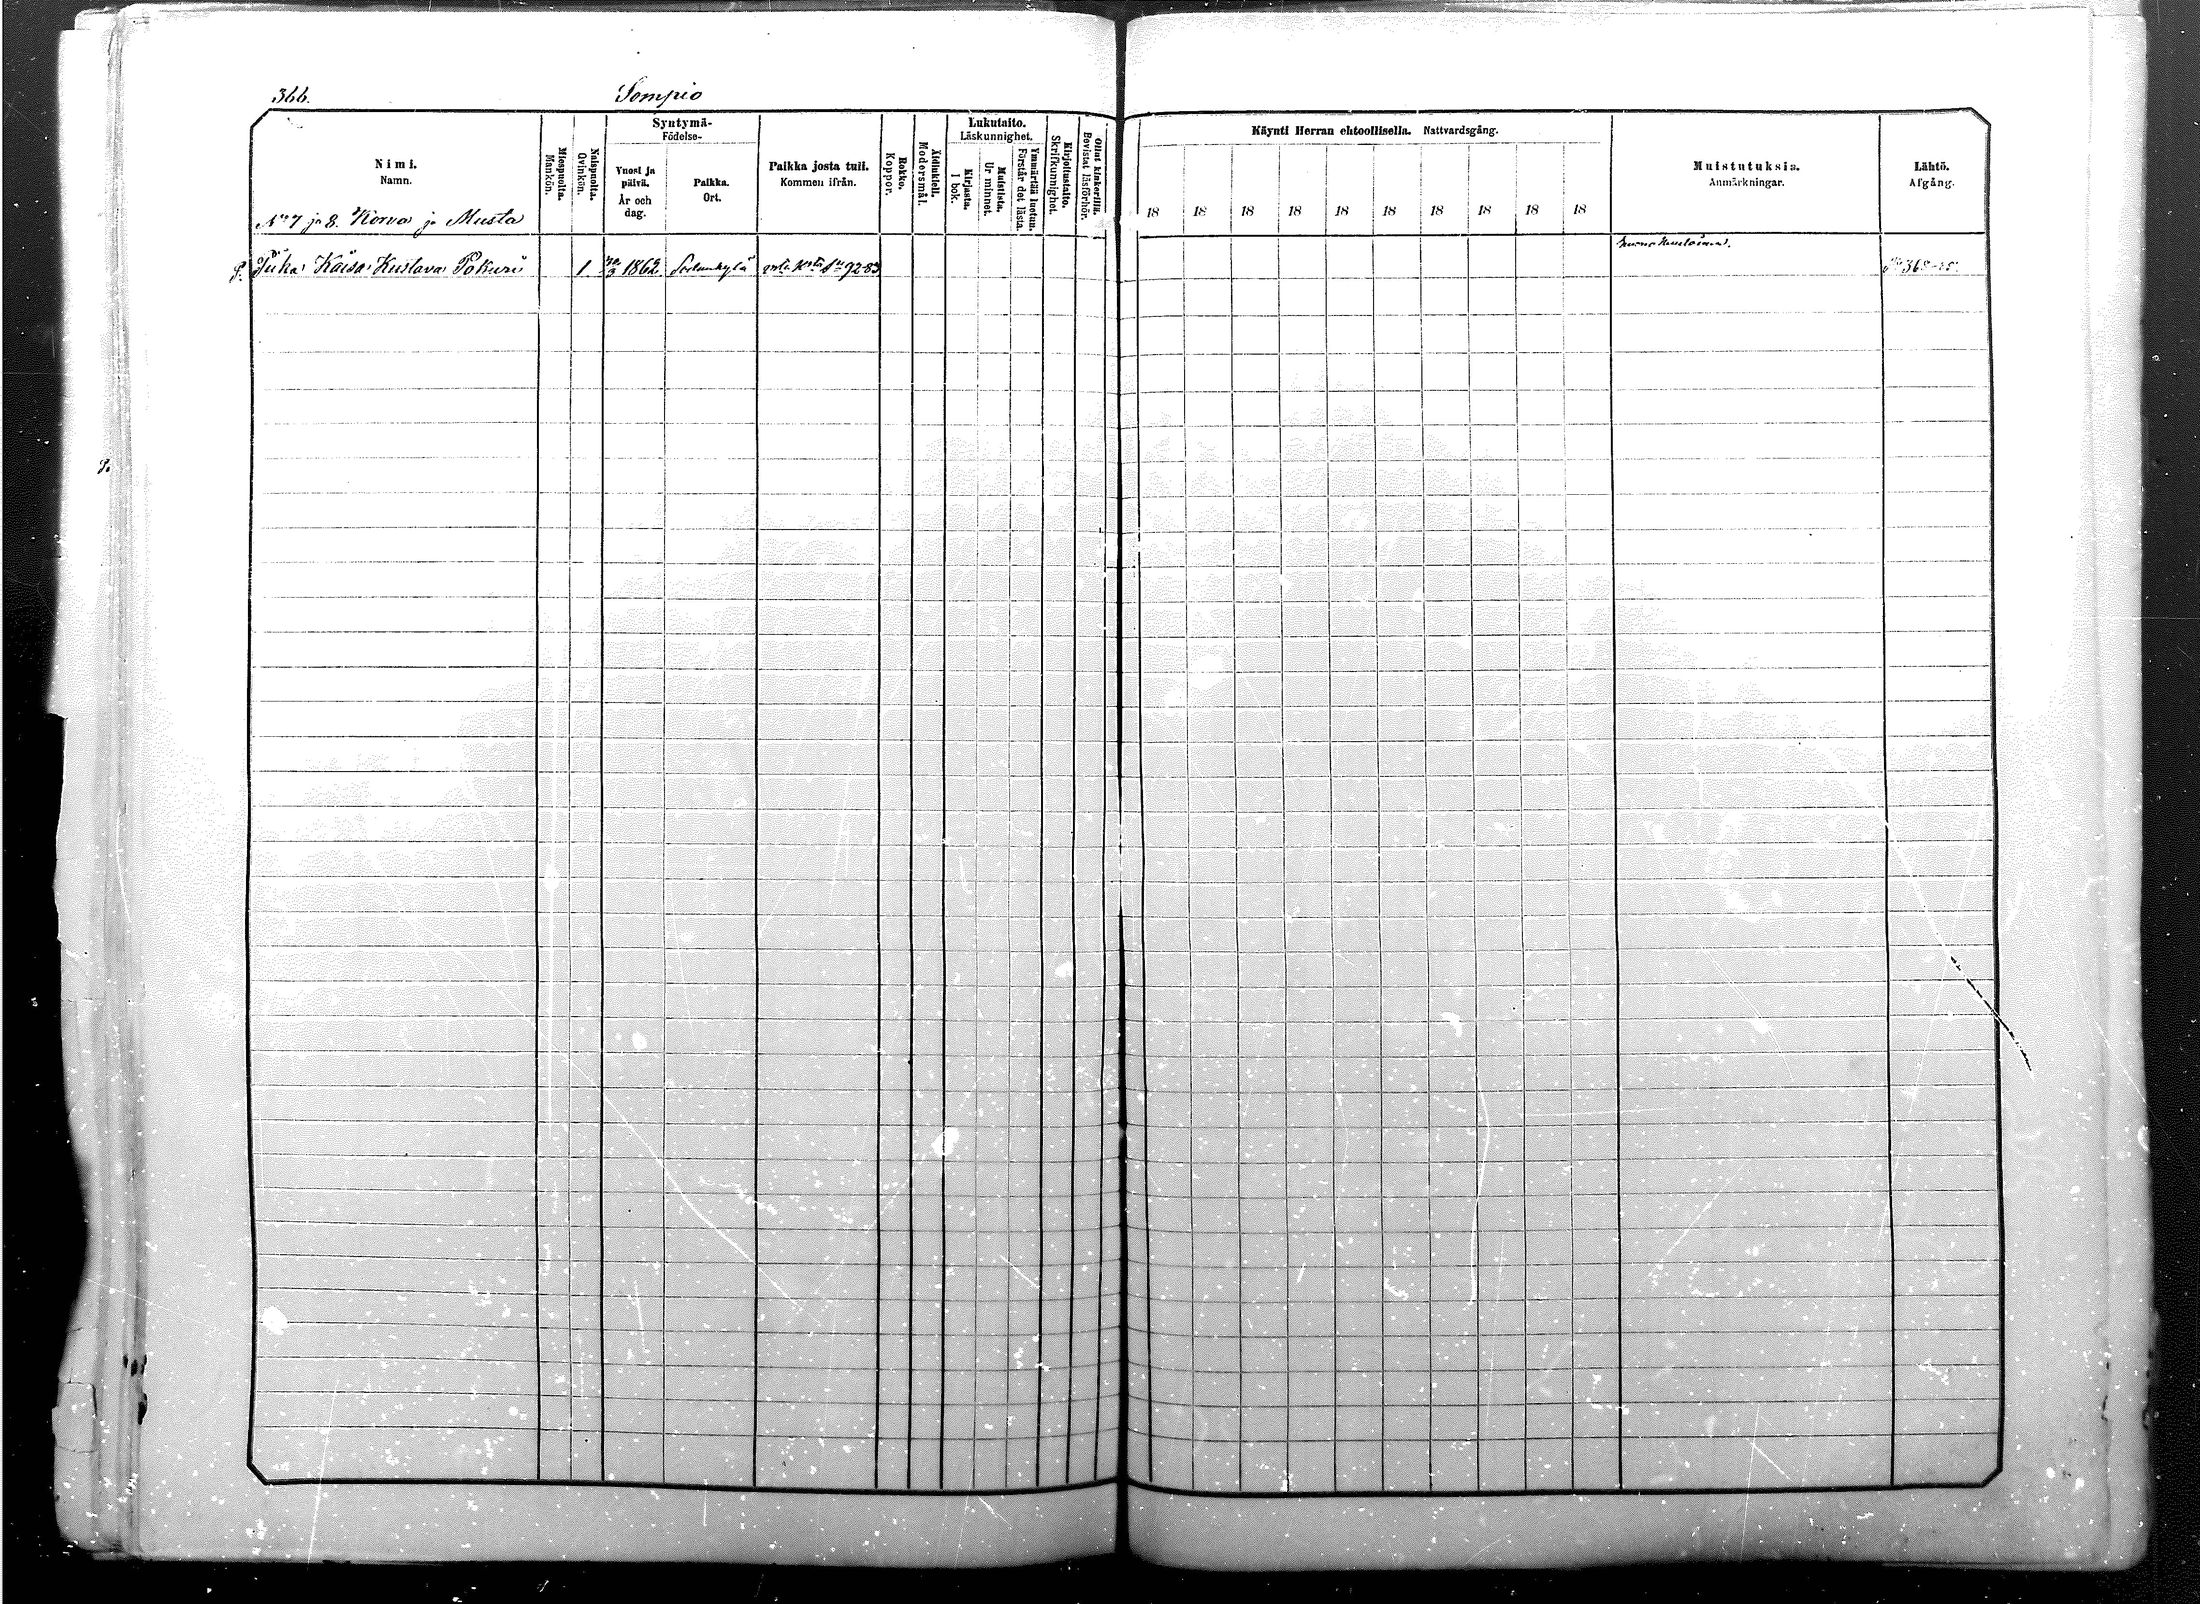 366. Sompio
Nimi.
Namn.
Miespuolta.
Mankön.
Naispuolta.
Qvinkön.
Syntymä-
Födelse-
Vuosi ja
päivä.
År och
dag.
Paikka.
Ort.
Paikka josta tuli.
Kommen ifrån.
Rokko.
Koppor.
Äidinkieli.
Modersmål.
Lukutaito.
Läskunnighet.
Kirjasta.
I bok.
Muistista.
Ur minnet.
Ymmärtää luetun.
Förstår det lästa.
Kirjoitustaito.
Skrifkunnighet.
Ollut kinkerillä.
Bevistat läsförhör.
Käynti Herran ehtoollisella. Nattvardsgång.
18 18 18 18 18 18 18 18 18 18
Muistutuksia.
Anmärkningar.
Lähtö.
Afgång.
No 7 ja 8. Korva ja Musta
P. Piika Kaisa Kustava Pokuri 1 1862 Sodankylä 92-83 368-85.